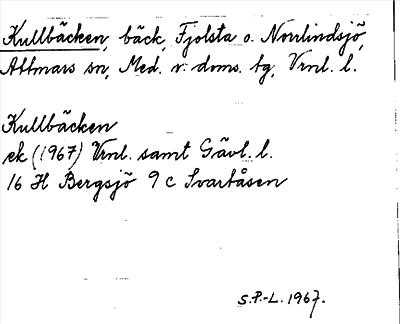 Kullbäcken, bäck, Fjolsta o. Norrlindsjö,
Attmars sn, Med. v. doms. tg, Vrnl. l.
Kullbäcken
ek (1967) Vrnl. samt Gävl. l.
16 H Bergsjö 9 c Svartåsen
S.P.-L. 1967.